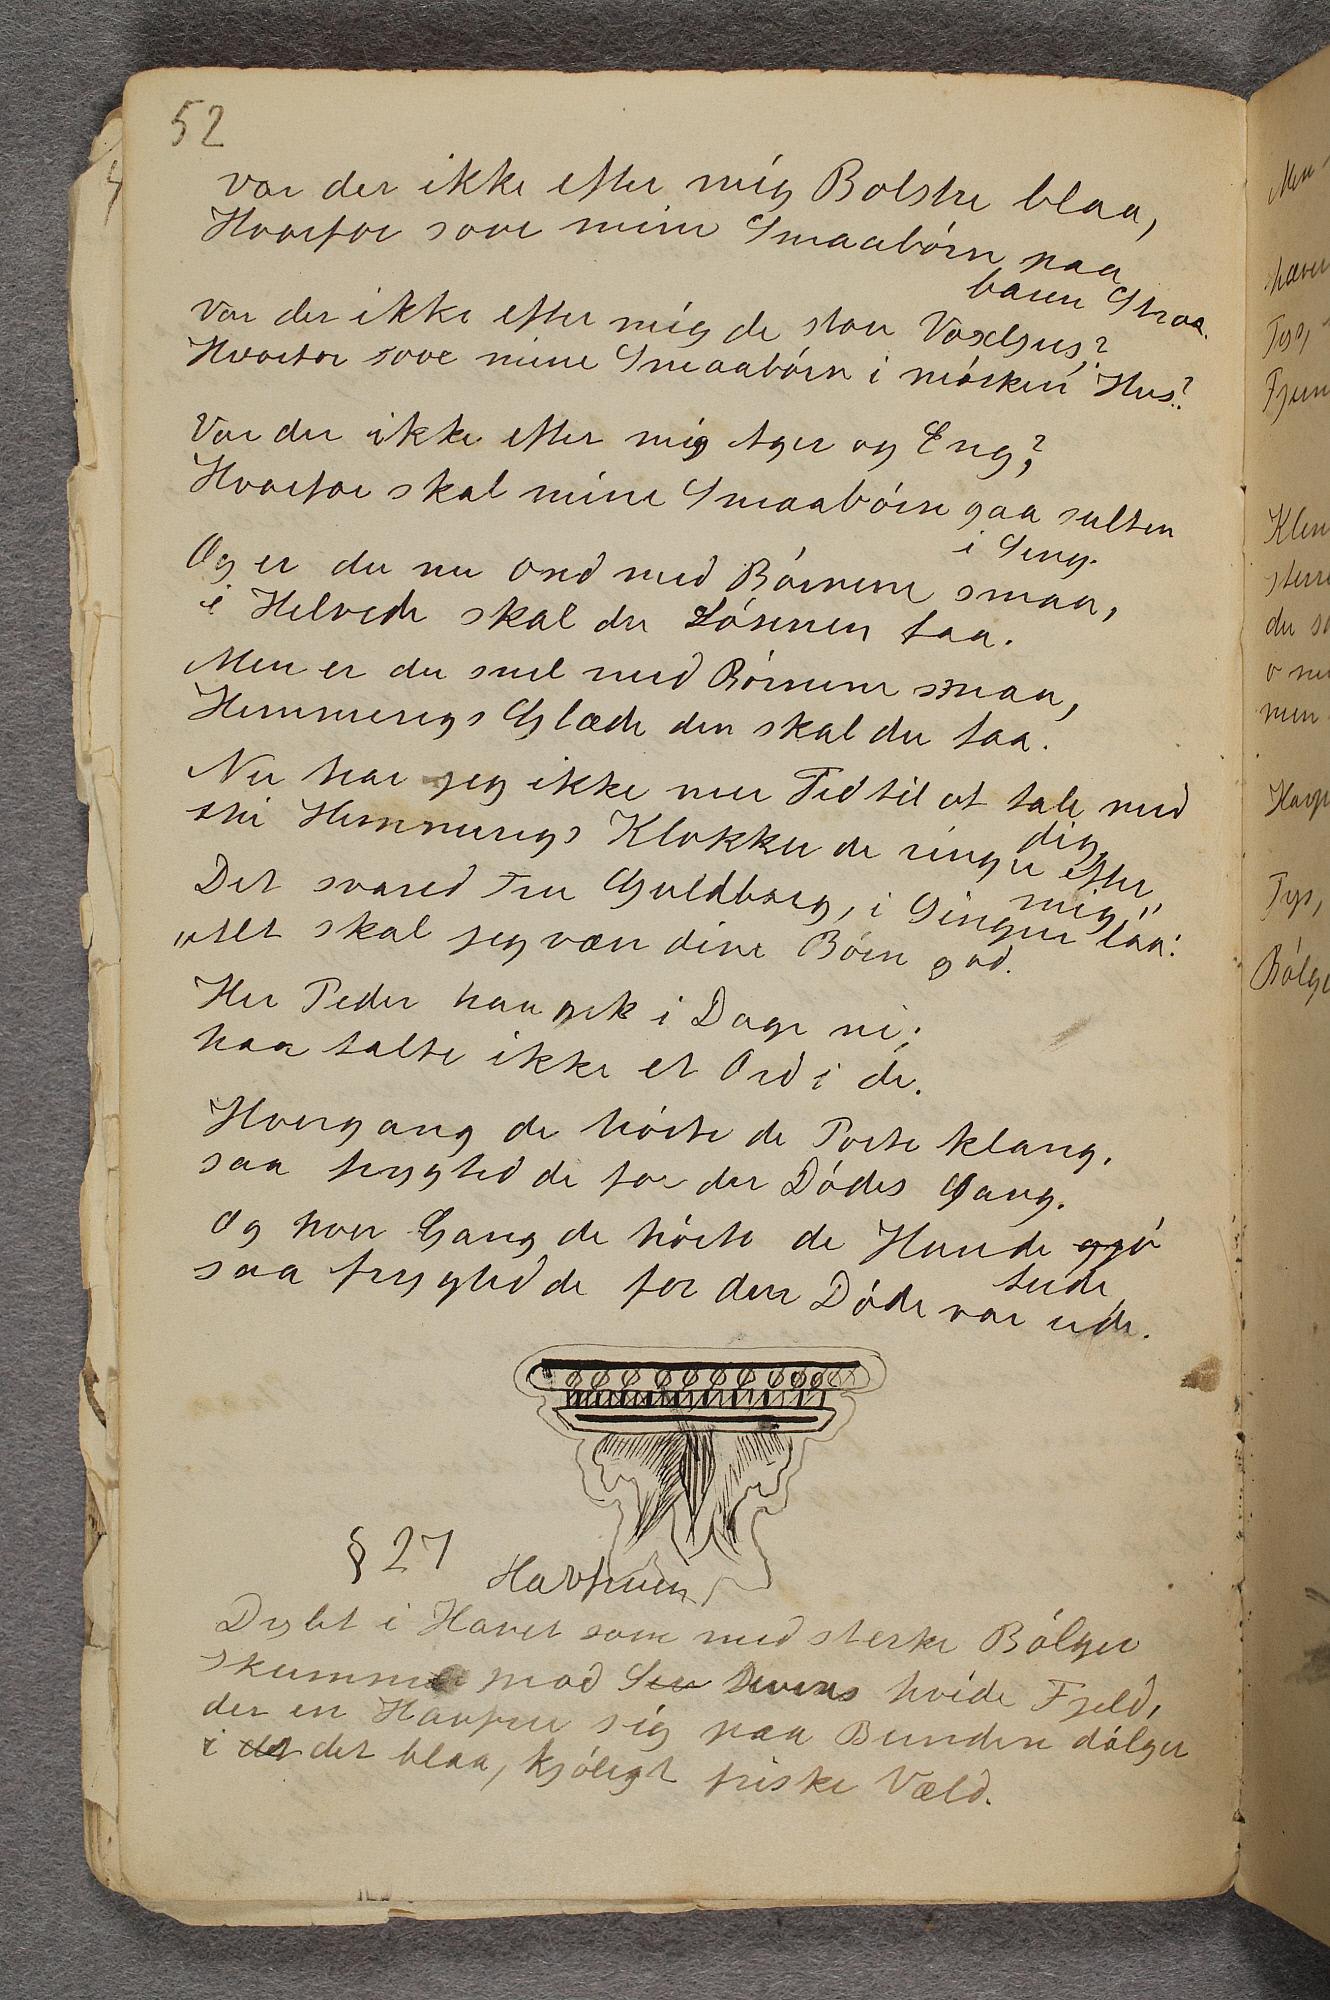 52
var der ikke efter mig Bolstre blaa,
Hvorfor sove mine Smaabörn paa
baren Straa.
Var der ikke efter mig de store Voxlyus?
Hvorfor sove mine Smaabörn i mörken Hus?
Var der ikke efter mig Ager og Eng?
Hvorfor skal mine Smaabörn gaa sulten
i Seng.
Og er du nu ond med Börnene smaa,
i Helvede skal du Lönnen faa.
Men er du snil med Börnene smaa,
Himmerigs Glæde den skal du faa.
Nu har jeg ikke mer Tid til at tale med
dig
thi Himmerigs Klokker de ringer efter
mig"
Det svared Fru Guldborg, i Sengen laa:
"Alt skal jeg være dine Börn god.
Her Peder han gik i Dage ni;
han talte ikke et Ord i de.
Hvergang de hörte de Porte klang,
saa frygted de for den Dödes Gang.
Og hver Gang de hörte de Hunde gjö
tude
saa frygted de for den Döde var ude.
§ 27
Havfruen
Dybt i Havet som med sterke Bölger
skummer mod hvide Fjeld,
der en Havfru sig paa Bunden dölger
i det det blaa, kjöligt friske Væld.